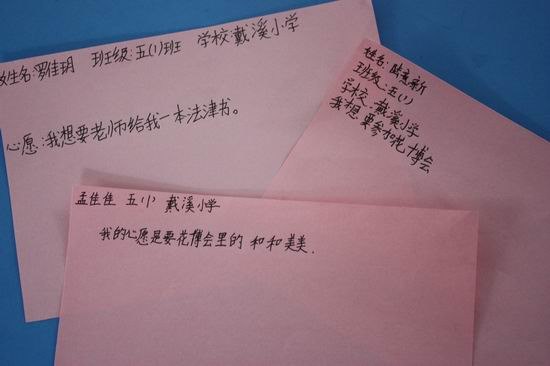 姓名:罗佳玥 班级:五(1)班 学校:戴溪小学
心愿:我想要老师给我一本法津书。
姓名:陆意新
班级:五(1)
学校:戴溪小学
我想要参加花博会
孟佳佳 五(1) 戴溪小学
我的心愿是要花博会里的 和和美美.